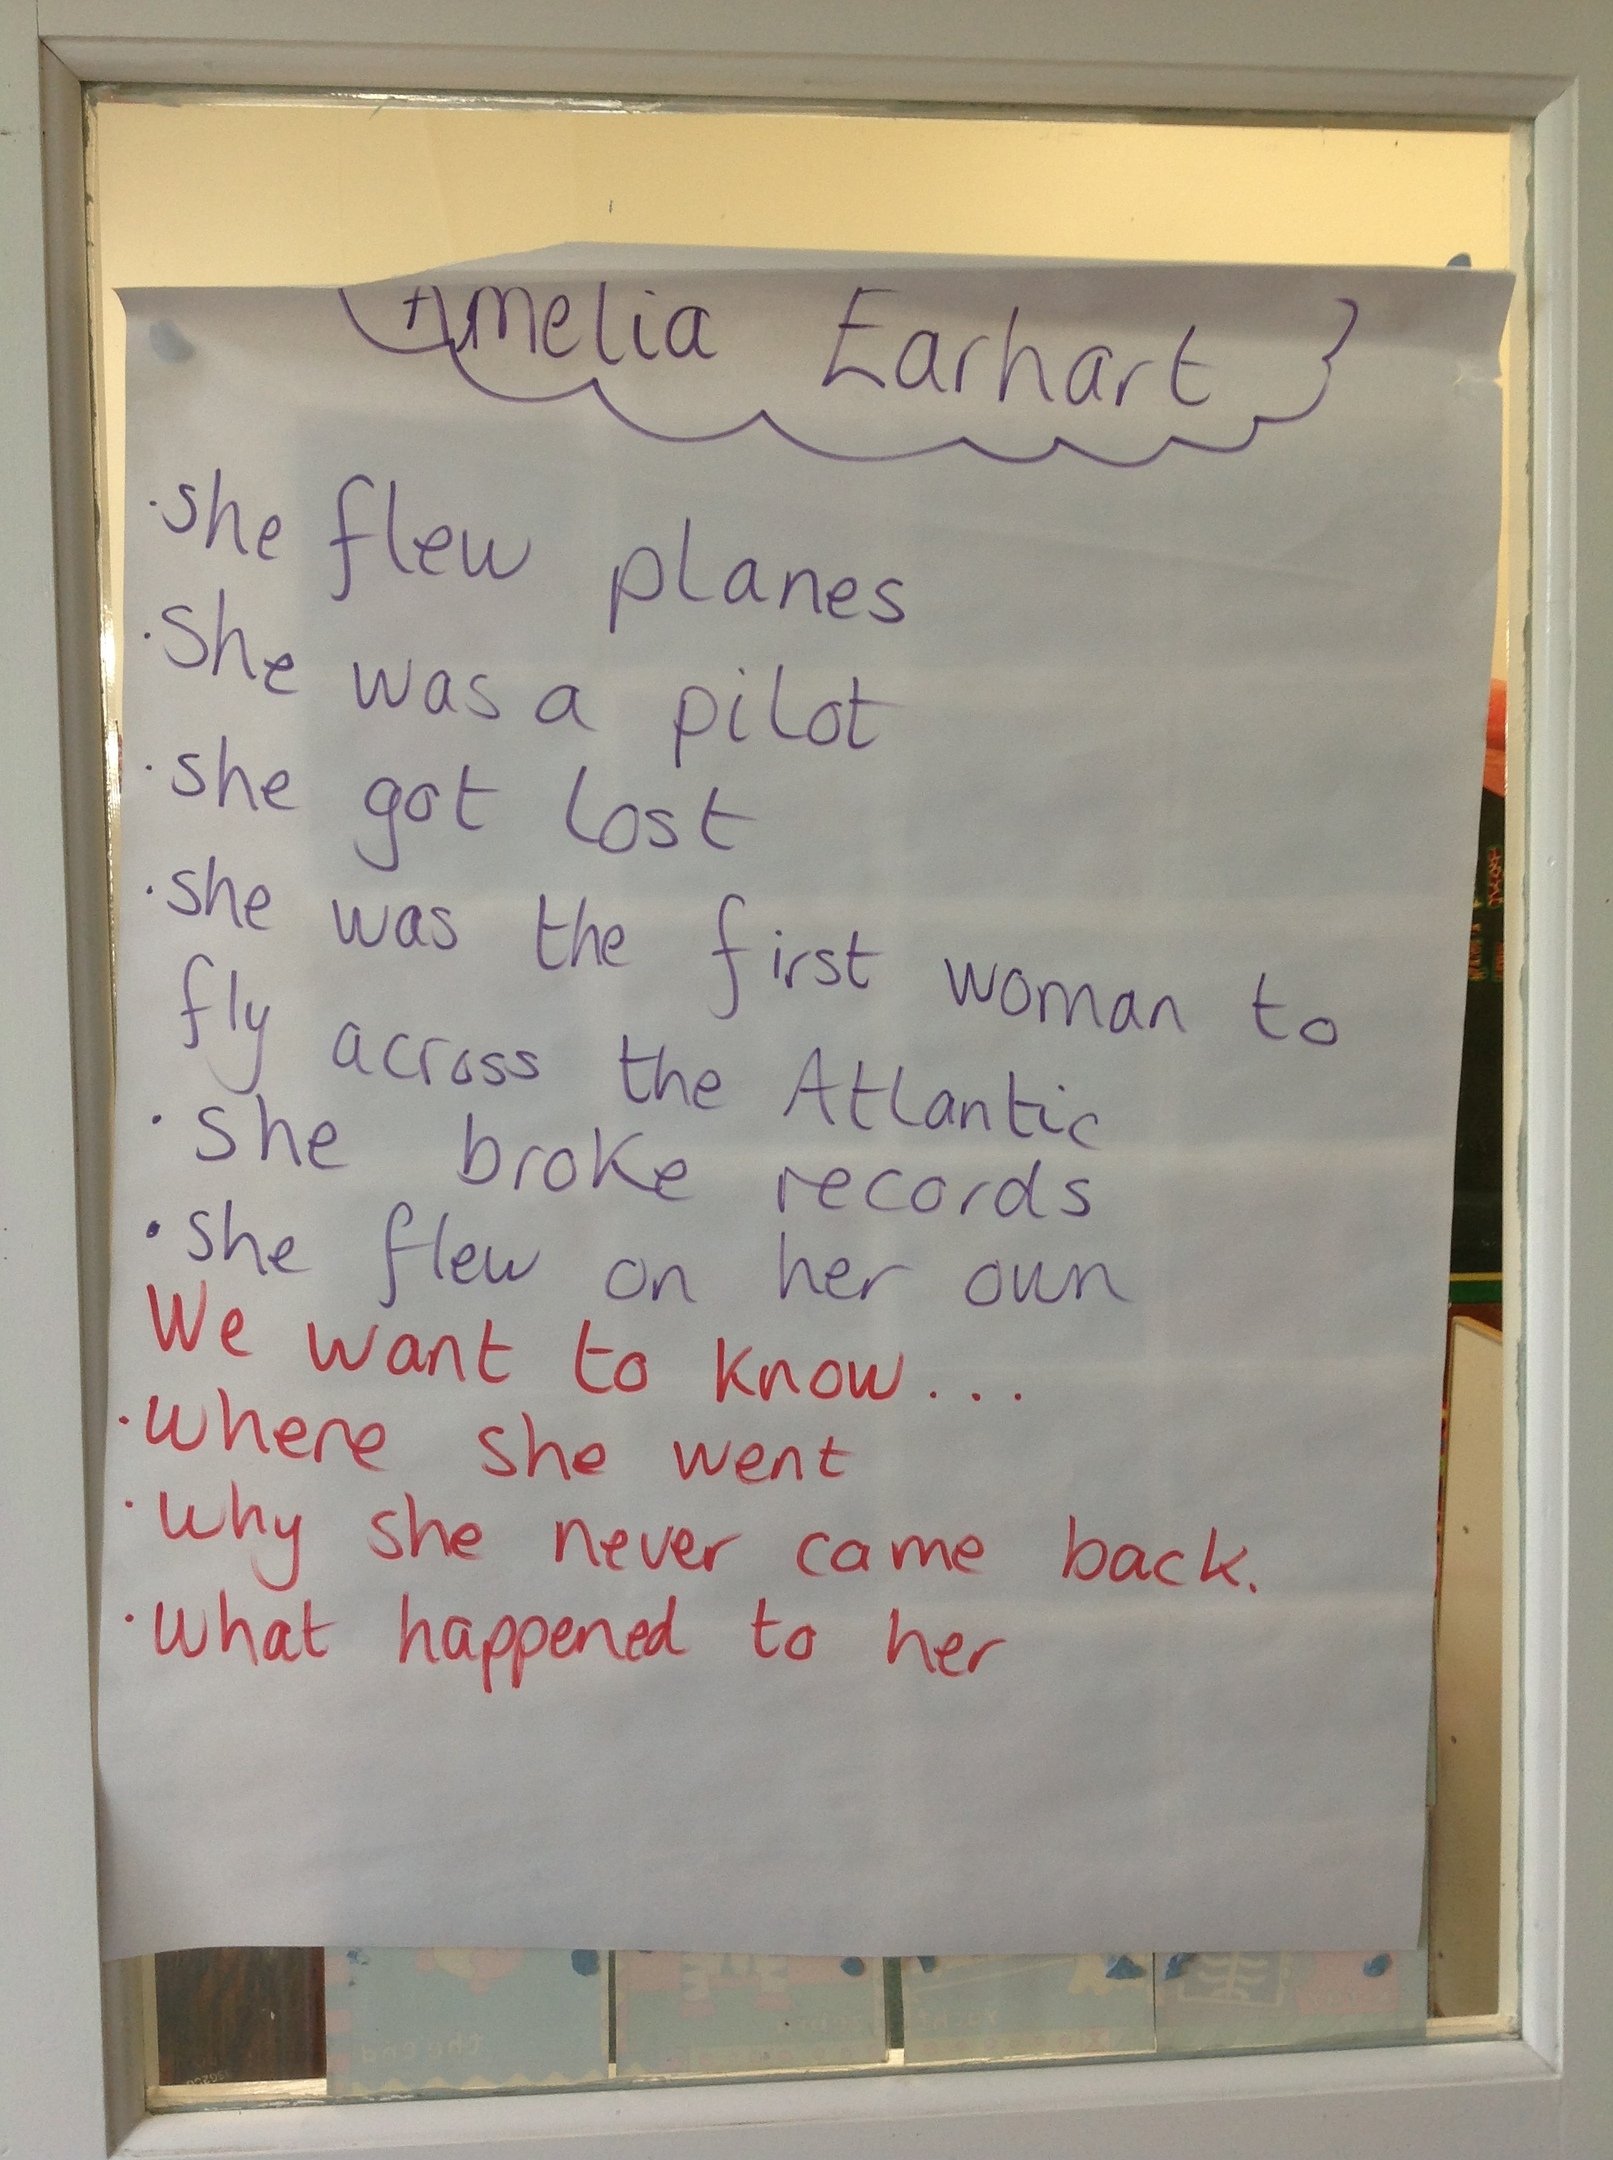 Amelia Earhart
·she flew planes
·She was a pilot
·she got lost
·she was the first woman to
fly across the Atlantic
·she broke records
·she flew on her own
We want to know...
·where she went
·why she never came back.
·what happened to her